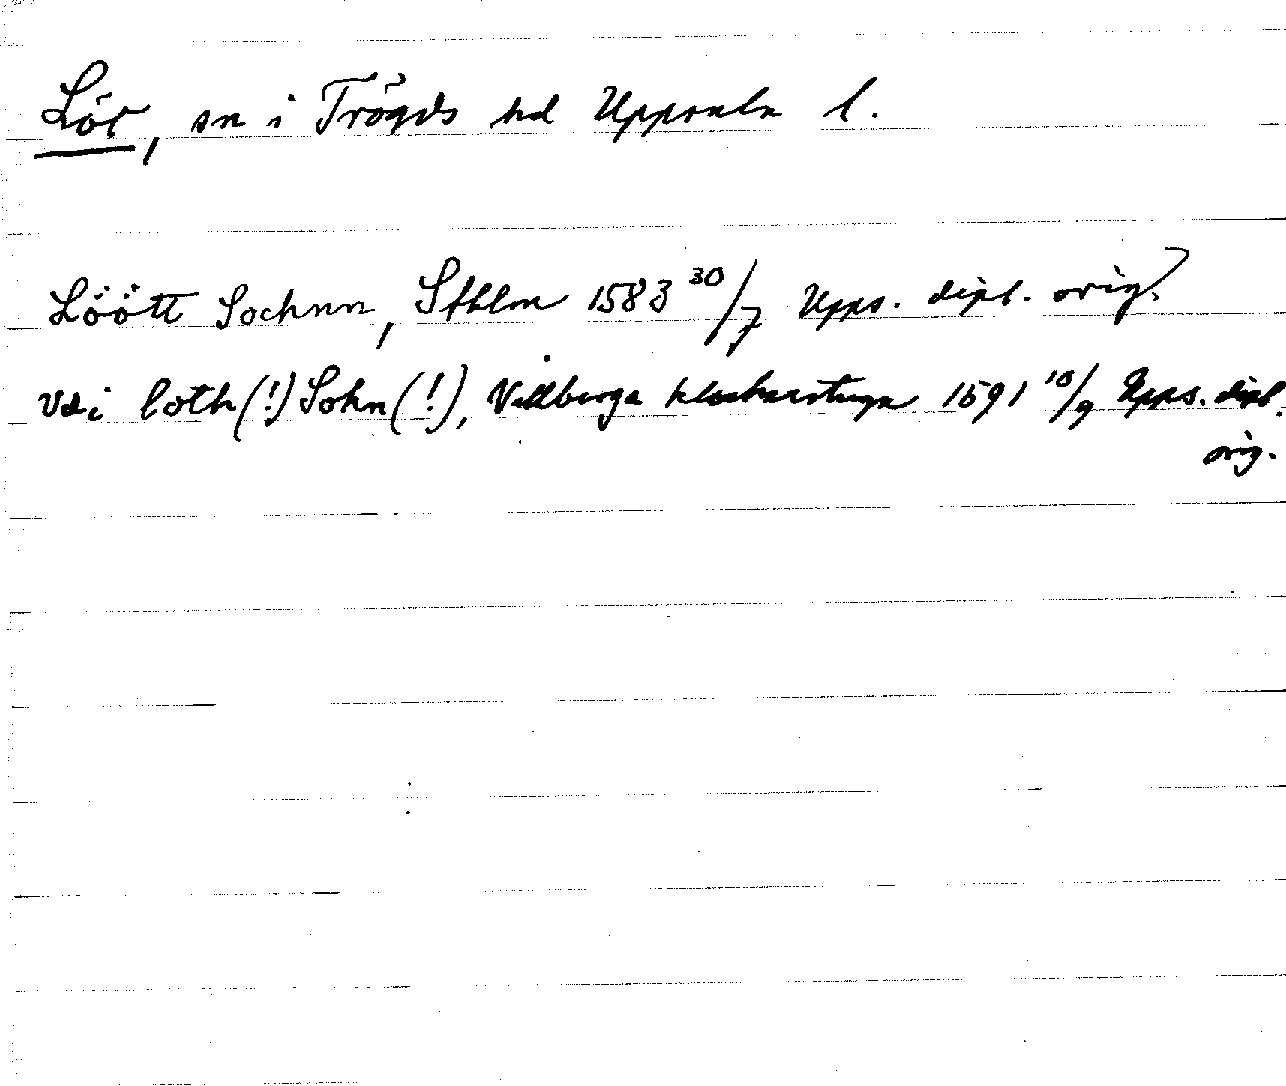 Löt, sn i Trögds hd Uppsala l.
Löött Sochnn, Sthlm 1583 30/7 Upps. dipl. orig.
Vdi loth(!) Sohn(!), Villberga klockarstuga 1591 10/9 Upps. dipl.
orig.